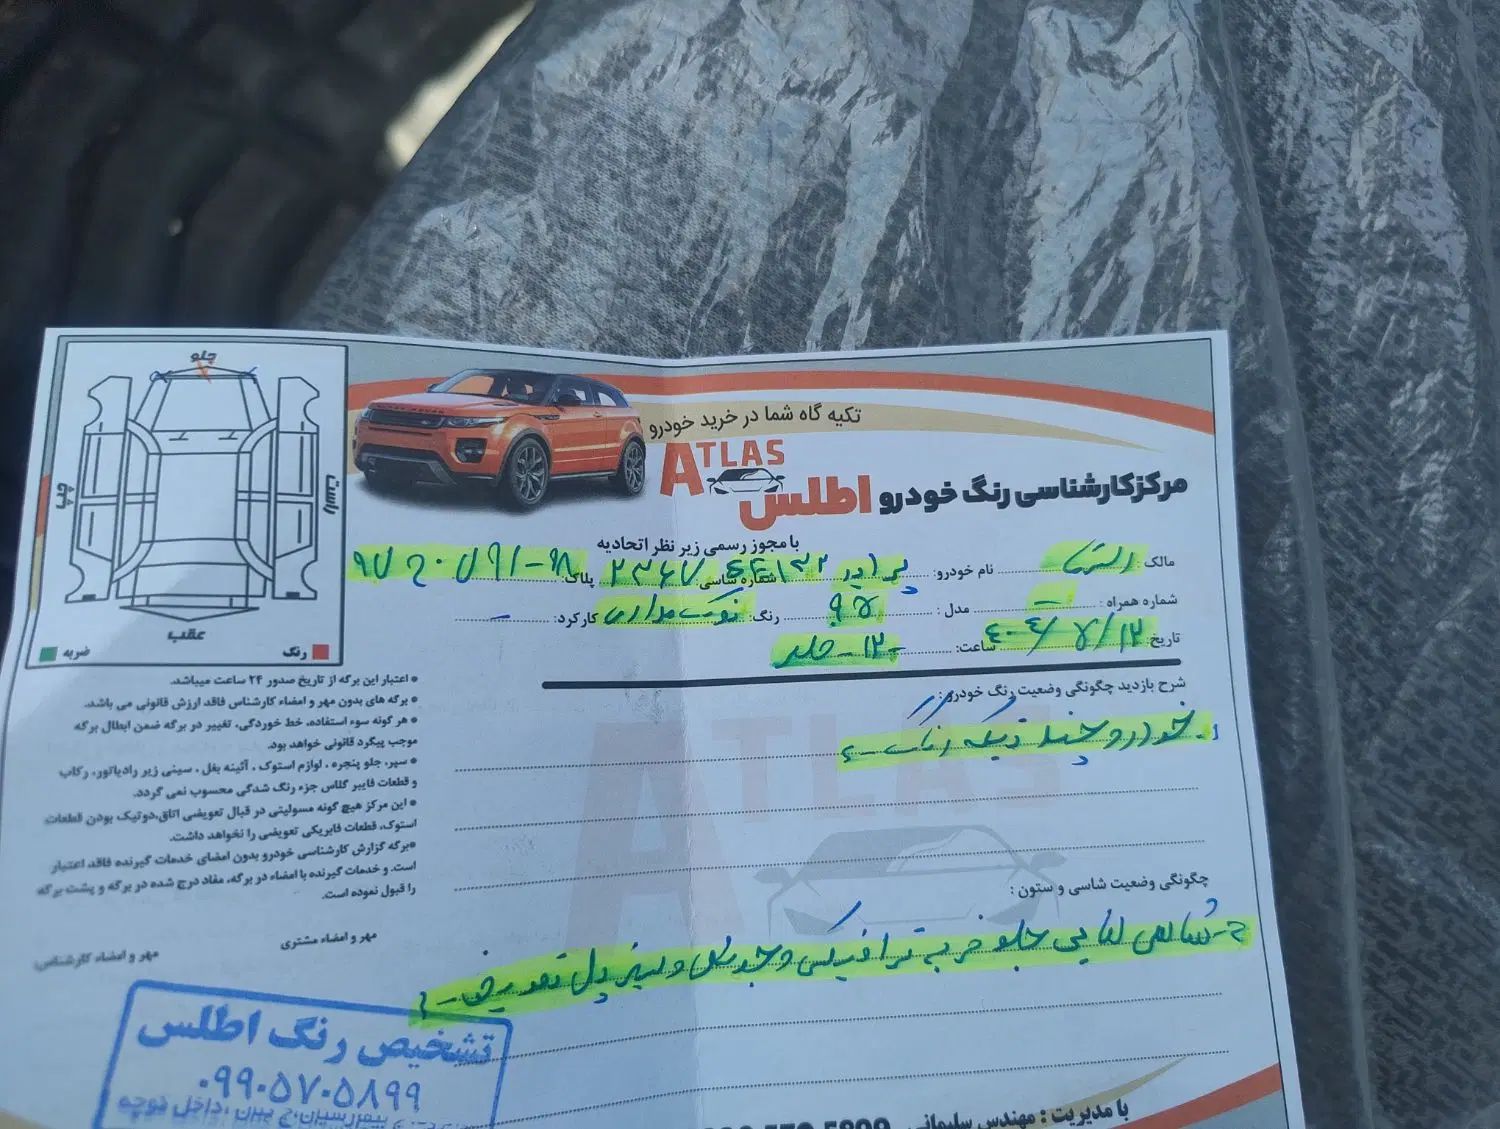 تکیه گاه شما در خرید خودرو
ATLAS
مرکز کارشناسی رنگ خودرو اطلس
با مجوز رسمی زیر نظر اتحادیه
مالک: نام خودرو: پراید شماره شاسی پلاک:
شماره همراه: - مدل: ۹۵ رنگ: نوک مدادی کارکرد: -
تاریخ: ۴۰۴/۷/۱۲ ساعت: ۱۲
شرح بازدید چگونگی وضعیت رنگ خودرو:
خودرو چند تیکه رنگ
چگونگی وضعیت شاسی و ستون:
جلو ضربه ترافیکی و
جلو
راست
چپ
عقب
رنگ
ضربه
• اعتبار این برگه از تاریخ صدور ۲۴ ساعت میباشد.
• برگه های بدون مهر و امضاء کارشناس فاقد ارزش قانونی می باشد.
• هر گونه سوء استفاده، خط خوردگی، تغییر در برگه ضمن ابطال برگه
موجب پیگرد قانونی خواهد بود.
• سپر، جلو پنجره، لوازم استوک، آئینه بغل، سینی زیر رادیاتور، رکاب
و قطعات فایبر گلاس جزء رنگ شدگی محسوب نمی گردد.
• این مرکز هیچ گونه مسولیتی در قبال تعویضی اتاق، دوتیک بودن قطعات
استوک، قطعات فابریکی تعویضی را نخواهد داشت.
•برگه گزارش کارشناسی خودرو بدون امضای خدمات گیرنده فاقد اعتبار
است. و خدمات گیرنده با امضاء در برگه، مفاد درج شده در برگه و پشت برگه
را قبول نموده است.
مهر و امضاء مشتری
مهر و امضاء کارشناس:
تشخیص رنگ اطلس
۰۹۹۰۵۷۰۵۸۹۹
با مدیریت: مهندس سلیمانی